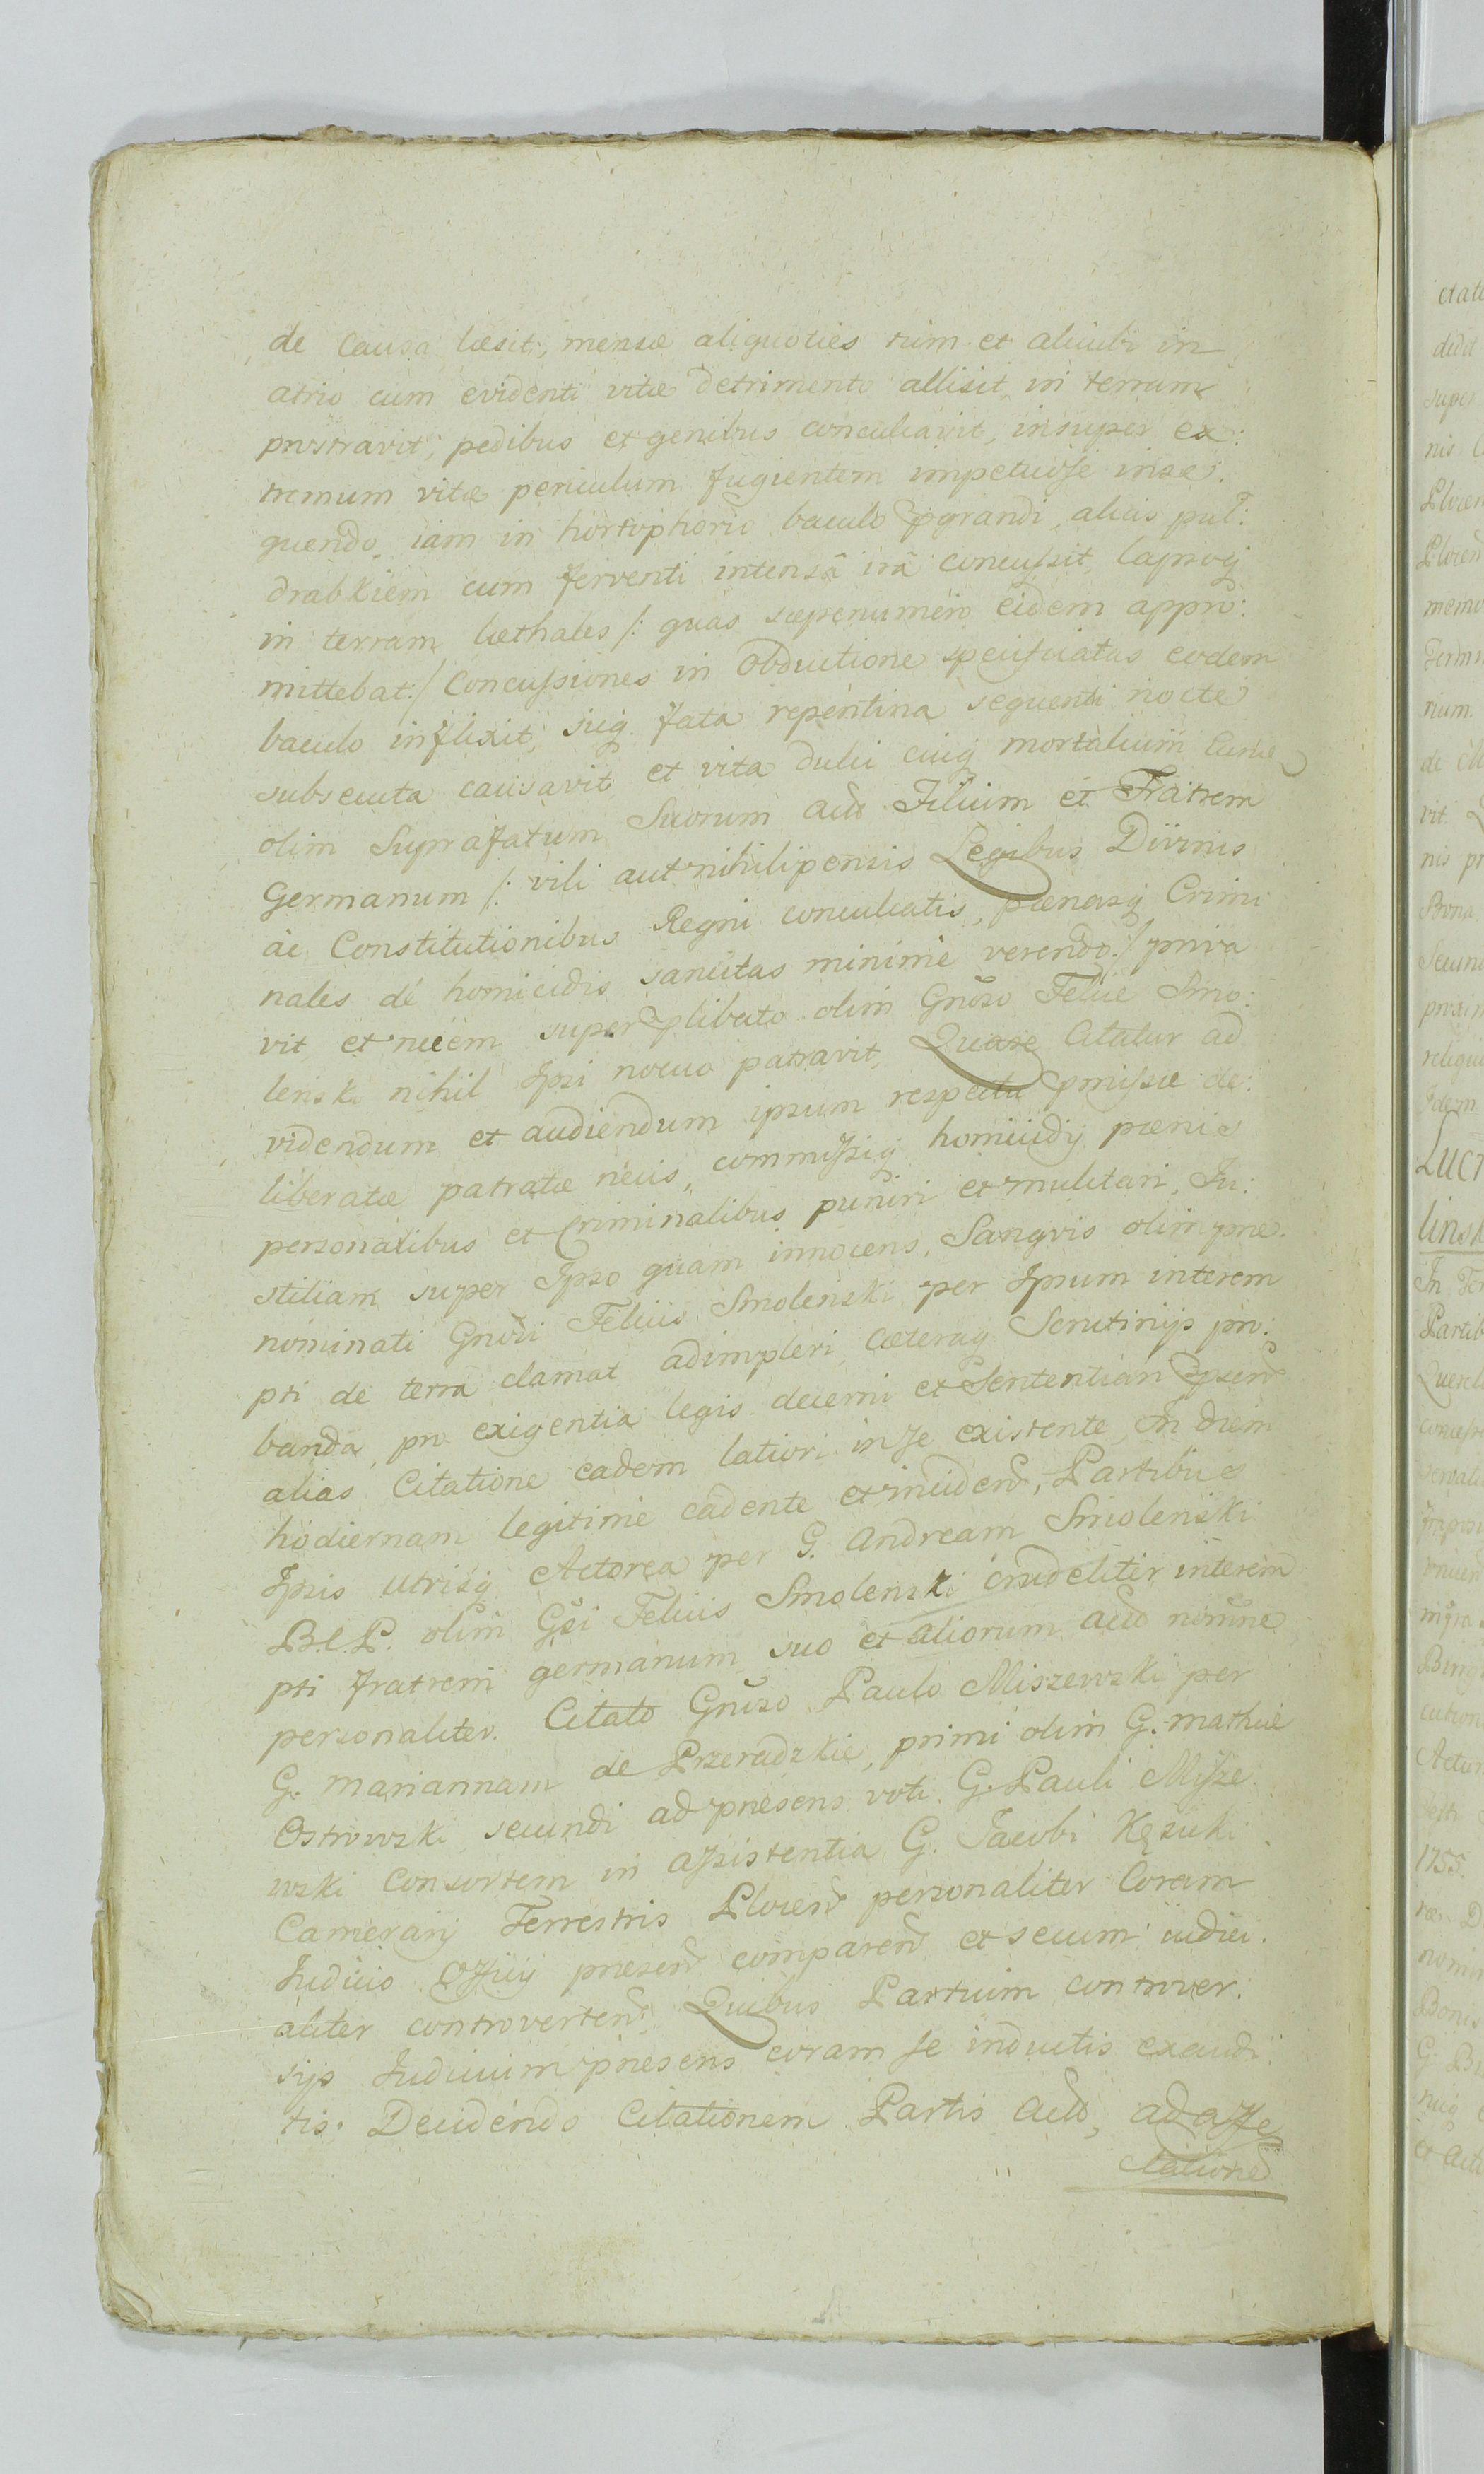 de Causa læsit, mensæ aliquoties tum et alicubi in
atrio cum evidenti vitæ detrimento allisit, in terram
prostravit; pedibus et genibus conculcavit, insuper ex:
tremum vitæ periculum fugientem impetuose inse:
quendo, iam in hortophorio baculo pgrandi, alias puł:
drabkiem cum ferventi intensâ irâ concussit, lapsoq
in terram læthales /: quas sæpenumero eidem appro:
mittebat:/ Concussiones in Obductione specificatas eodem
baculo inflixit, sicq fata repentina sequenti nocte
subsecuta causavit et vita dulci cuiq mortalium
olim Suprafatum Suorum Acto Filium et Fratrem
Germanum /: vili aut nihilipensis Legibus Divinis
ac Constitutionibus Regni conculcatis, pœnasq Crimi
nales de homicidis sancitas minimè verendo:/ priva
vit, et necem superplibato olim Gnoso Felici Smo:
lenski nihil Ipsi nocuo patravit, Quare Citatur ad
videndum et audiendum ipsum respectu pmissæ de:
liberatæ patratæ necis, commissiq homicidij pœnis
personalibus et Criminalibus puniri et mulctari, Iu:
stitiam super Ipso quam innocens Sangvis olim præ:
nominati Gnosi Felicis Smolenski per Ipsum interem
pti de terra clamat adimpleri, cæteraq Scrutinijs pro:
banda, pro exigentia legis decerni et Sententiari
alias Citatione eadem latiori in se existente, In diem
hodiernam legitime cadente et inciden, Partibus
Ipsis utrisq Actorea per G. Andream Smolenski
olim Gsi Felicis Smolenski crudeliter interem
pti fratrem germanum suo et aliorum Acto nomine
personaliter. Citato Gnoso Paulo Miszewski per
G. Mariannam de Przeradzkie, primi olim G. Mathiæ
Ostrowski, secundi ad præsens voti G. Pauli Misze
wski Consortem in assistentia G. Jacobi Kęsicki
Camerarij Terrestris Plocen personaliter Coram
Iudicio Officij præsen comparen et secum iudici:
aliter controverten. Quibus Partium controver:
sijs Iudicium præsens coram se inductis exaudi:
tis. Decidendo Citationem Partis Acto, ad affe
ctatione